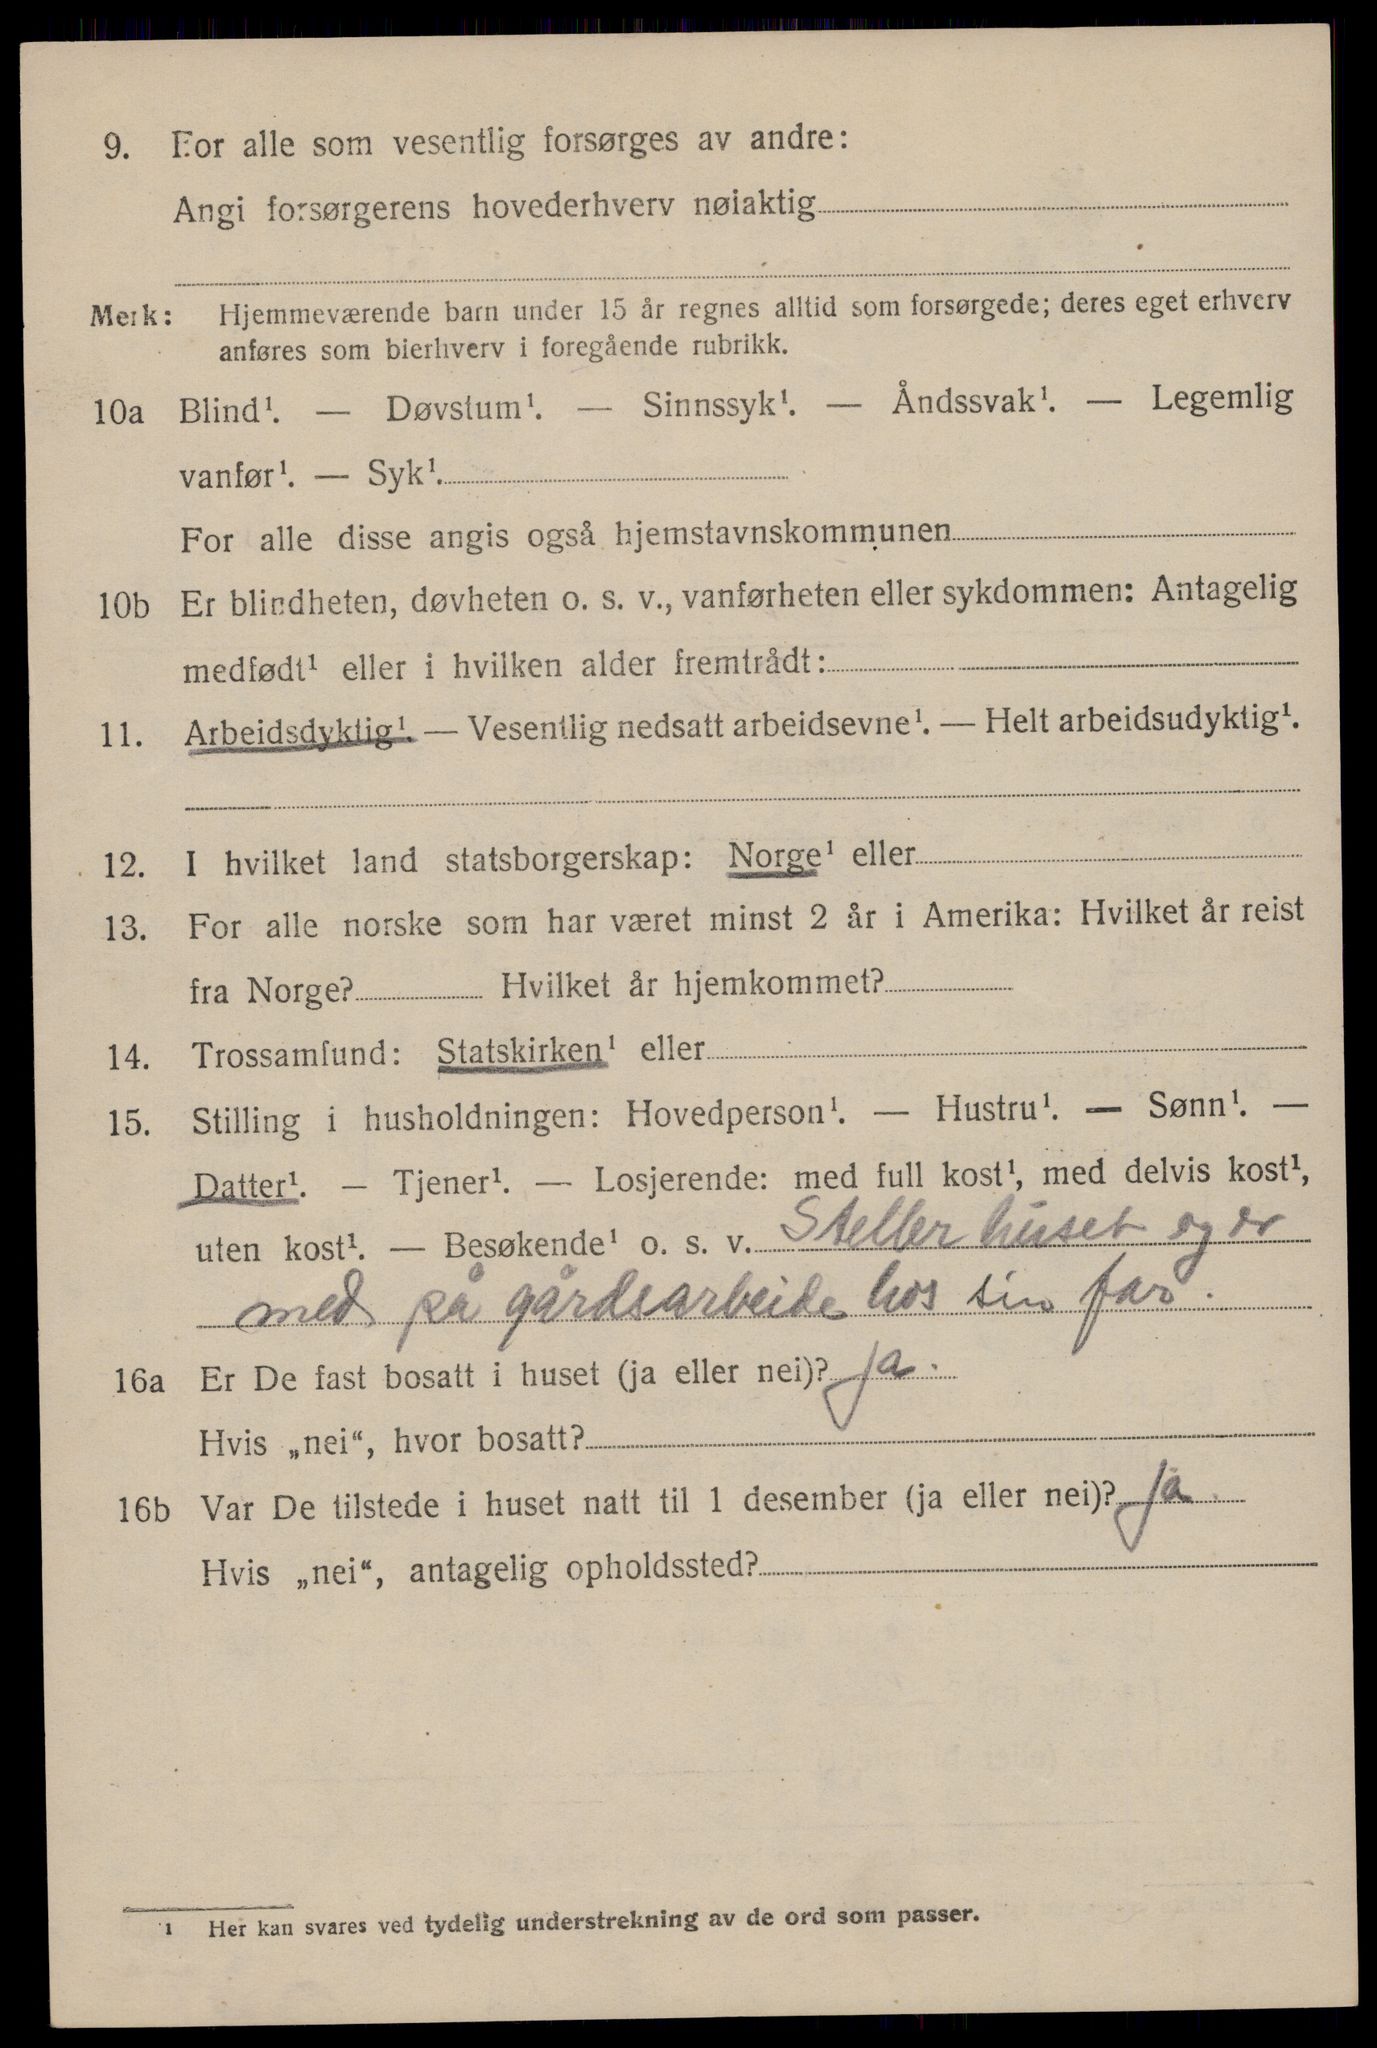 9. For alle som vesentlig forsørges av andre:
Angi forsørgerens hovederhverv nøiaktig
Merk: Hjemmeværende barn under 15 år regnes alltid som forsørgede; deres eget erhverv
anføres som bierhverv i foregående rubrikk.
10a Blind¹. — Døvstum¹. — Sinnssyk¹. — Åndssvak¹. — Legemlig
vanfør¹. — Syk¹.
For alle disse angis også hjemstavnskommunen
10b Er blindheten, døvheten o. s. v., vanførheten eller sykdommen: Antagelig
medfødt¹ eller i hvilken alder fremtrådt:
11. Arbeidsdyktig¹. — Vesentlig nedsatt arbeidsevne¹. — Helt arbeidsudyktig¹.
12. I hvilket land statsborgerskap: Norge¹ eller
13. For alle norske som har været minst 2 år i Amerika: Hvilket år reist
fra Norge? Hvilket år hjemkommet?
14. Trossamfund: Statskirken¹ eller
15. Stilling i husholdningen: Hovedperson¹. — Hustru¹. — Sønn¹. —
Datter¹. — Tjener¹. — Losjerende: med full kost¹, med delvis kost¹,
uten kost¹. — Besøkende¹ o. s. v. Steller huset og er
med på gårdsarbeide hos sin far.
16a Er De fast bosatt i huset (ja eller nei)? ja.
Hvis „nei“, hvor bosatt?
16b Var De tilstede i huset natt til 1 desember (ja eller nei)? ja.
Hvis „nei“, antagelig opholdssted?
1 Her kan svares ved tydelig understrekning av de ord som passer.